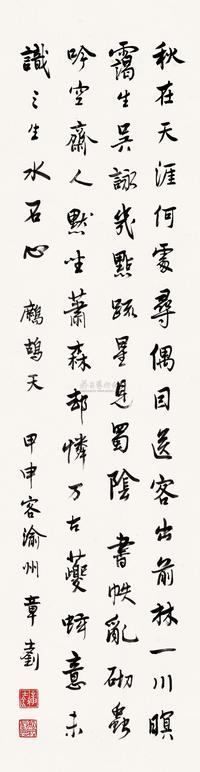 秋在天涯何處尋偶因送客出前林一川暝
靄生吳詠幾點疏星見蜀陰 書帙亂砌蟲
吟空齋人默坐蕭森却憐万古夔蚿意未
識之生水石心 鷓鴣天 甲申客渝州章釗